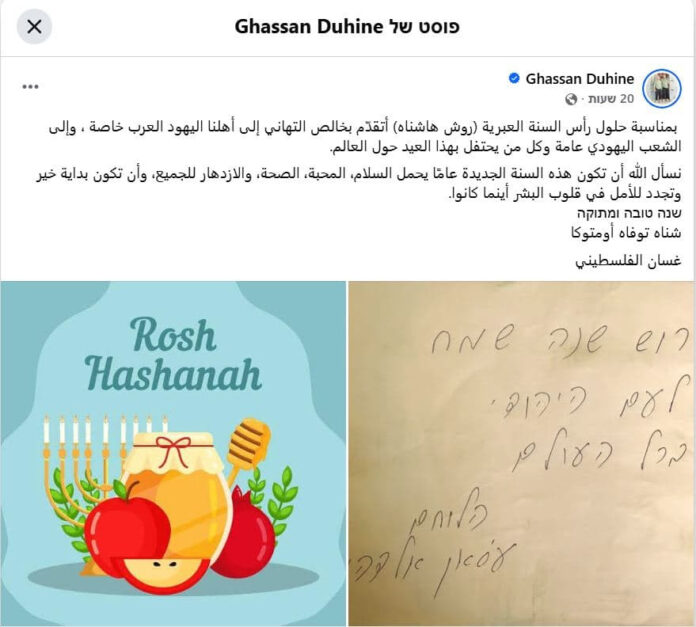 פוסט של Ghassan Duhine
Ghassan Duhine
20 שעות ·
بمناسبة حلول رأس السنة العبرية (روش هاشناه) أتقدّم بخالص التهاني إلى أهلنا اليهود العرب خاصة ، وإلى
الشعب اليهودي عامة وكل من يحتفل بهذا العيد حول العالم.
نسأل الله أن تكون هذه السنة الجديدة عامًا يحمل السلام، المحبة، الصحة، والازدهار للجميع، وأن تكون بداية خير
وتجدد للأمل في قلوب البشر أينما كانوا.
שנה טובה ומתוקה
شناه توفاه أومتوكا
غسان الفلسطيني
Rosh
Hashanah
רוש שנה שמח
לעם היהודי
בכל העולם
הלוחם